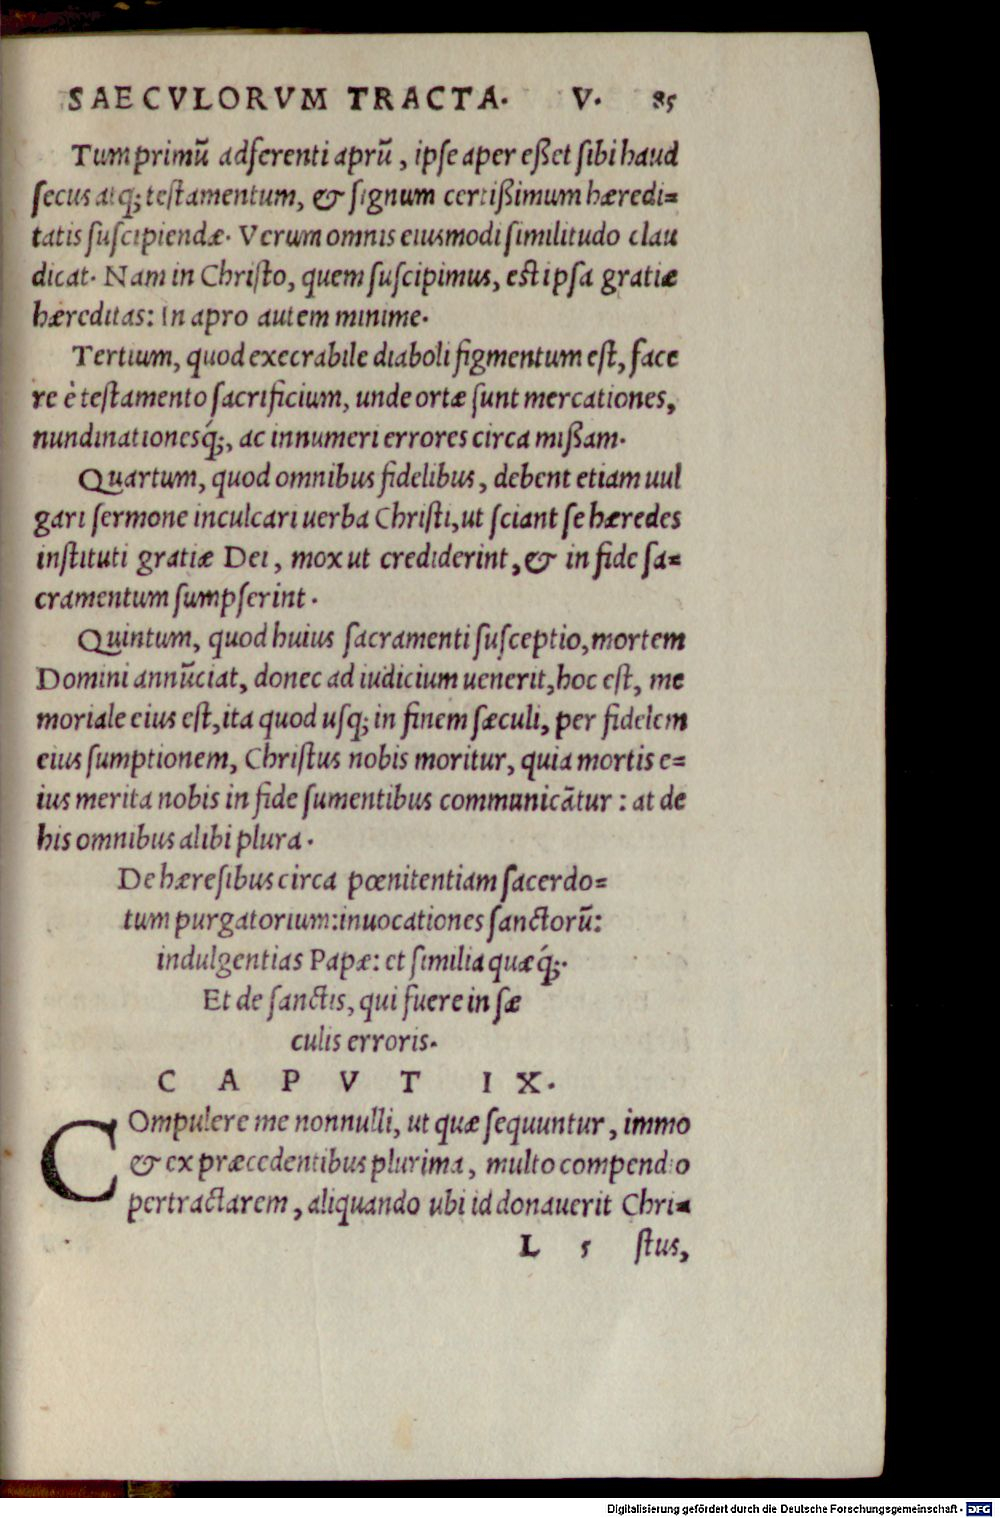 SAECVLORVM TRACTA. V. 85
Tum primū adferenti aprū, ipse aper eßet sibi haud
secus atq; testamentum, & signum certißimum hæredi=
tatis suscipiendæ. Verum omnis eiusmodi similitudo clau
dicat. Nam in Christo, quem suscipimus, est ipsa gratiæ
hæreditas: In apro autem minime.
Tertium, quod execrabile diaboli figmentum est, face
re è testamento sacrificium, unde ortæ sunt mercationes,
nundinationesq́;, ac innumeri errores circa mißam.
Quartum, quod omnibus fidelibus, debent etiam uul
gari sermone inculcari uerba Christi, ut sciant se hæredes
instituti gratiæ Dei, mox ut crediderint, & in fide sa=
cramentum sumpserint.
Quintum, quod huius sacramenti susceptio, mortem
Domini annūciat, donec ad iudicium uenerit, hoc est, me
moriale eius est, ita quod usq; in finem sæculi, per fidelem
eius sumptionem, Christus nobis moritur, quia mortis e=
ius merita nobis in fide sumentibus communicātur: at de
his omnibus alibi plura.
De hæresibus circa pœnitentiam sacerdo=
tum purgatorium: inuocationes sanctorū:
indulgentias Papæ: et similia quæq́;.
Et de sanctis, qui fuere in sæ
culis erroris.
CAPVT IX.
COmpulere me nonnulli, ut quæ sequuntur, immo
& ex præcedentibus plurima, multo compendio
pertractarem, aliquando ubi id donauerit Chri=
L 5 stus,
Digitalisierung gefördert durch die Deutsche Forschungsgemeinschaft - DFG